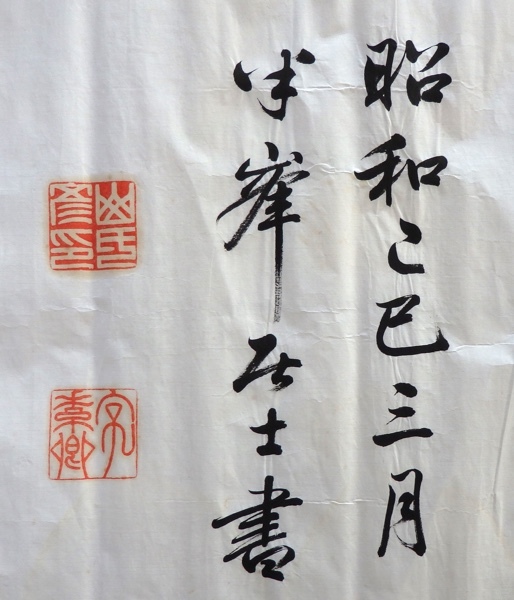 昭和己巳三月
半峯居士書